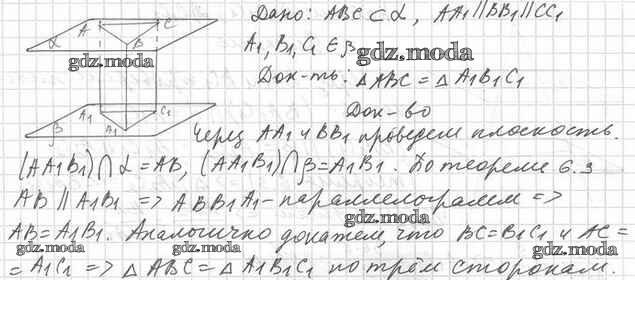 Дано: ABC ⊂ α, AA1 ∥ BB1 ∥ CC1
A C
α B
A1, B1, C1 ∈ β
gdz.moda
gdz.moda
Док-ть: △ABC = △A1B1C1
Док-во
A1 C1
β A1
Через AA1 и BB1 проведем плоскость.
(AA1B1) ∩ α = AB, (AA1B1) ∩ β = A1B1. По теореме 6.3
AB ∥ A1B1 => ABB1A1 - параллелограмм =>
gdz.moda
AB = A1B1. Аналогично докажем, что BC = B1C1 и AC =
gdz.moda gdz.moda gdz.moda
= A1C1 => △ABC = △A1B1C1 по трём сторонам.